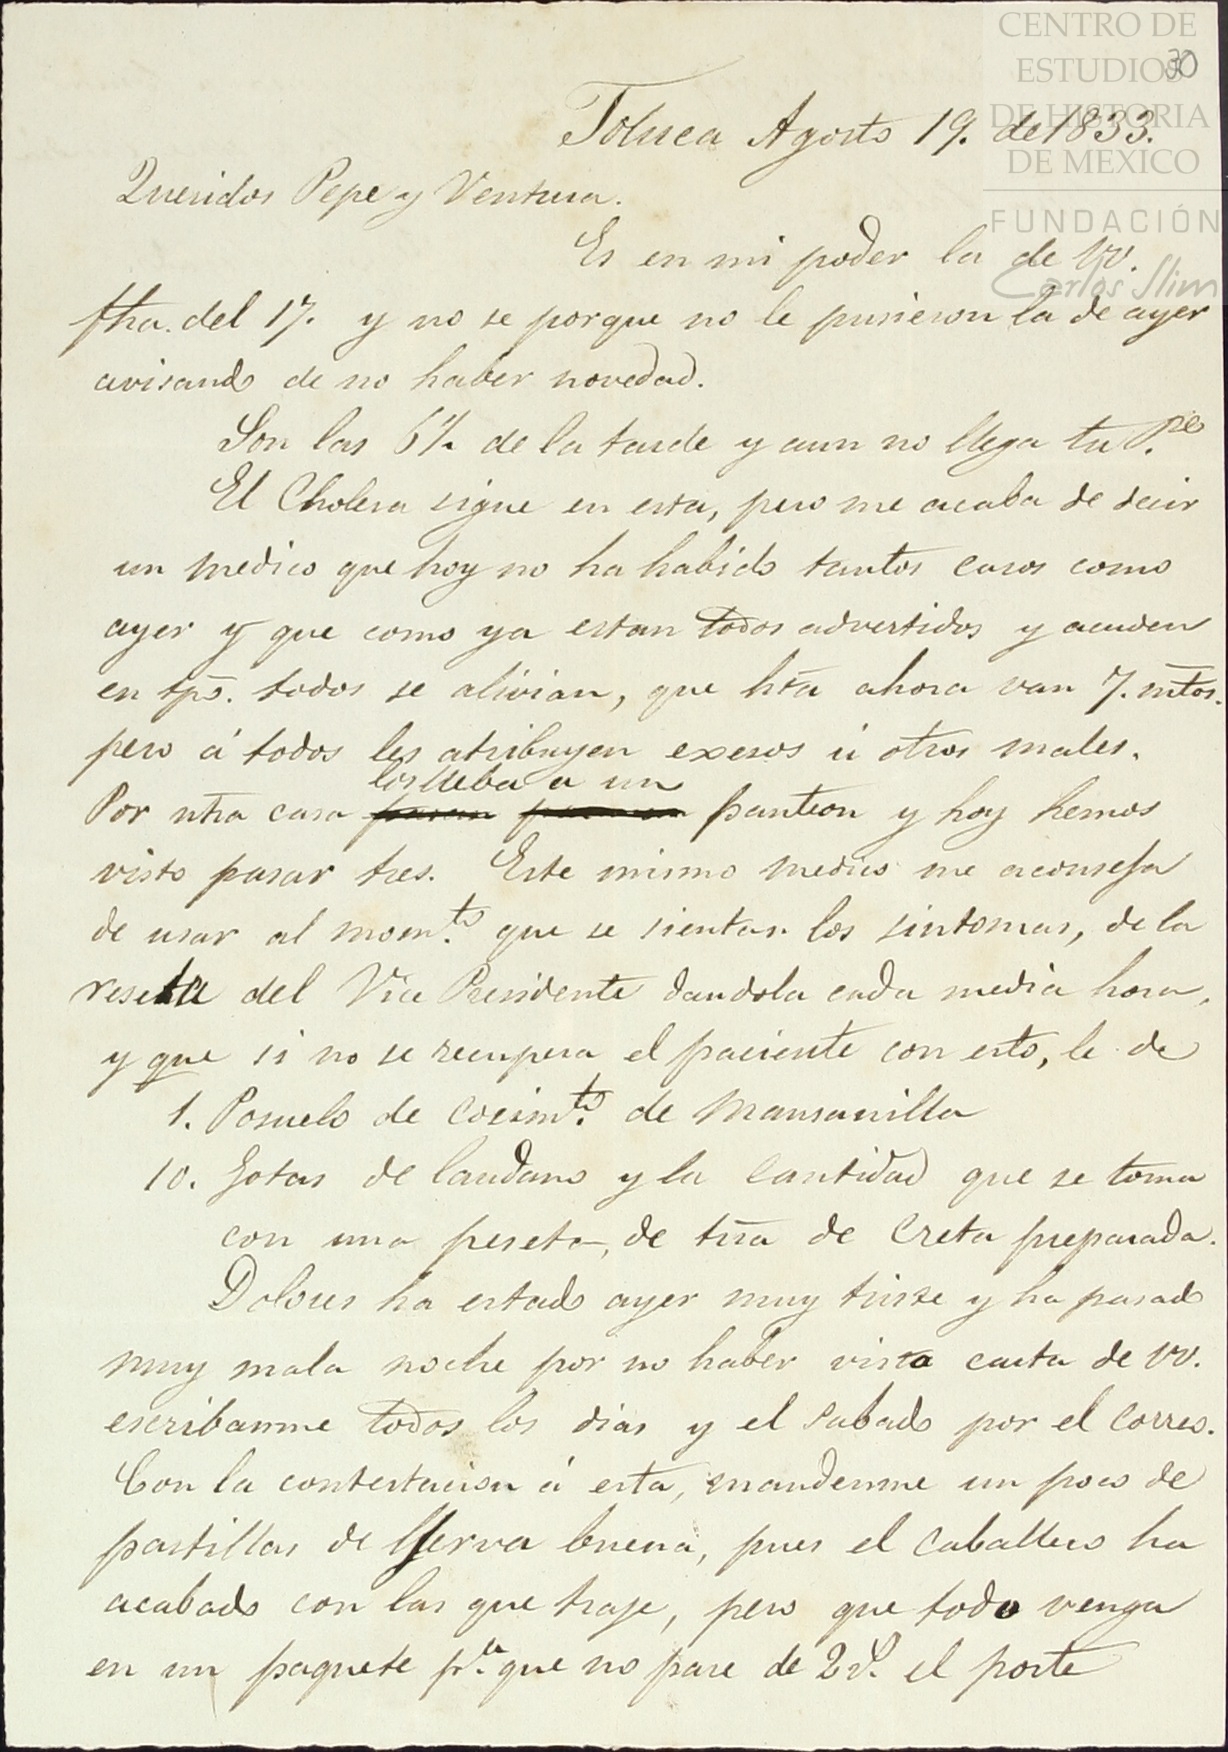 CENTRO DE
ESTUDIOS
DE HISTORIA
DE MEXICO
FUNDACIÓN
Carlos Slim
30
Toluca Agosto 19. de 1833.
Queridos Pepe y Ventura.
Es en mi poder la de VV.
fha. del 17. y no se porque no le pusieron la de ayer
avisando de no haber novedad.
Son las 6 1/2 de la tarde y aun no llega tu P.e
El Cholera sigue en esta, pero me acaba de decir
un medico que hoy no ha habido tantos casos como
ayer y que como ya estan todos advertidos y acuden
en tpõ. todos se alivian, que hta ahora van 7. mtos.
pero á todos les atribuyen exesos ú otros males.
los lleba a un
Por ntra casa panteon y hoy hemos
visto pasar tres. Este mismo medico me aconseja
de usar al mom.to que se sientan los sintomas, de la
reseta del Vice Presidente dandola cada media hora,
y que si no se recupera el paciente con esto, le de
1. Posuelo de cosim.to de Mansanilla
10. Gotas de laudano y la cantidad que se toma
con una peseta, de trra de Creta preparada.
Dolores ha estado ayer muy triste y ha pasado
muy mala noche por no haber visto carta de VV.
escribanme todos los dias y el sabado por el correo.
Con la contestacion á esta, mandenme un poco de
pastillas de Yerva buena, pues el caballero ha
acabado con las que traje, pero que todo venga
en un paquete p.a que no pase de 2 rs. el porte